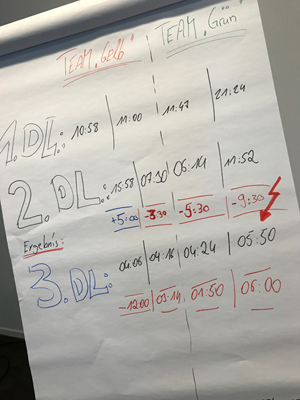 TEAM „Gelb" TEAM „Grün"
1. DL.: 10:58 11:00 11:47 21:24
2. DL.: 15:58 07:30 06:14 11:52
+5:00 -3:30 -5:30 -9:30
Ergebnis:
3. DL: 04:06 04:16 04:24 05:50
-12:00 03:14 01:50 06:00